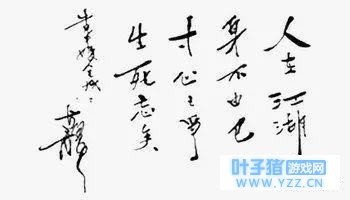 人在江湖
身不由己
寸心
生死忘矣
古龍
叶子猪游戏网
WWW.YZZ.CN